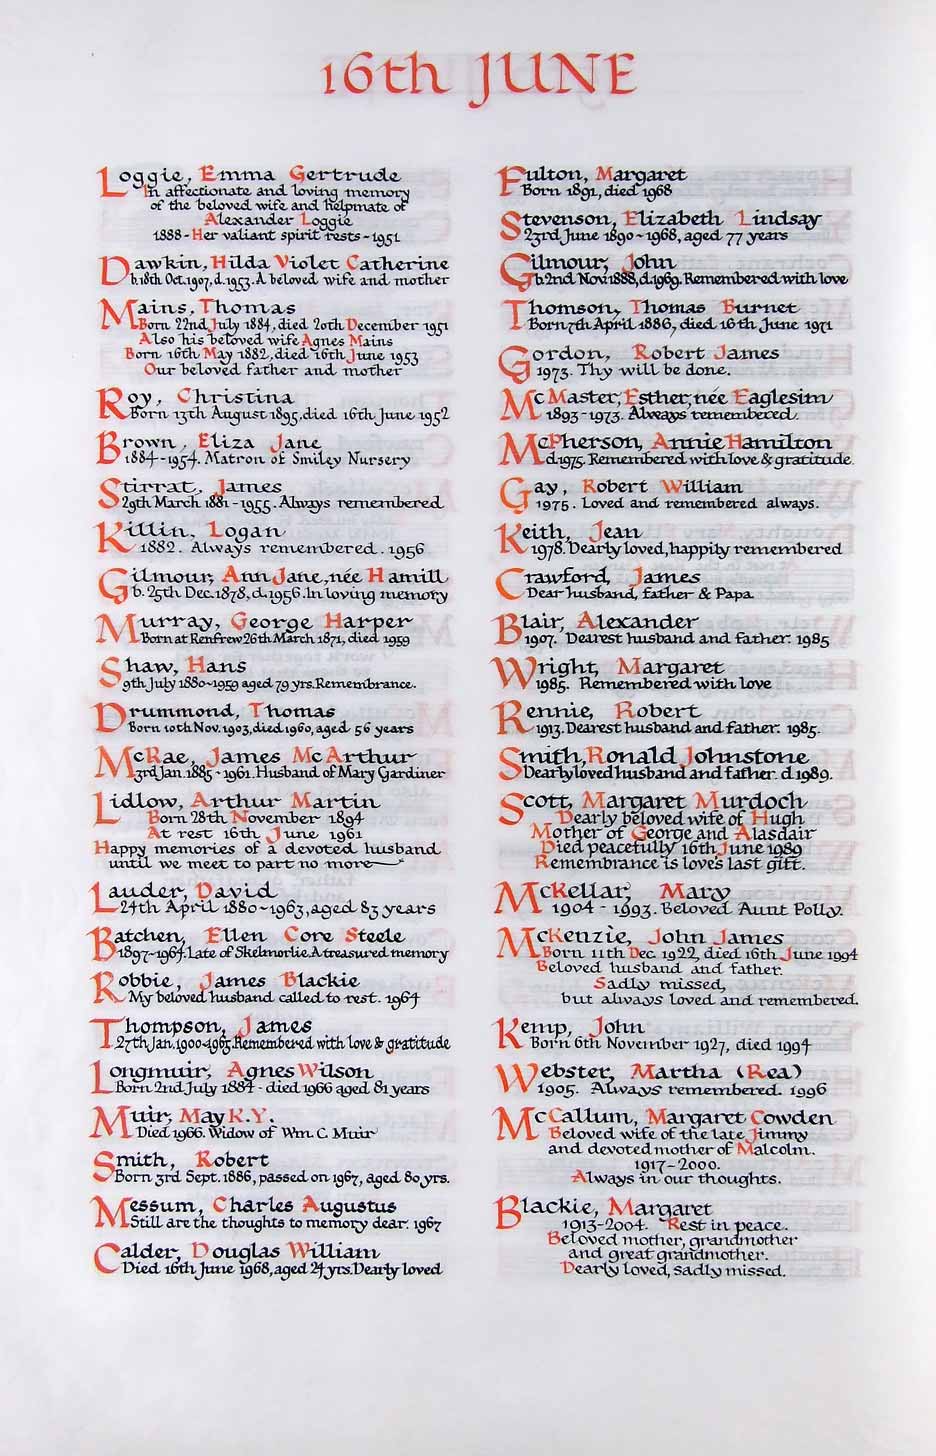 16th JUNE
Loggie, Emma Gertrude
In affectionate and loving memory
of the beloved wife and helpmate of
Alexander Loggie
1888 - Her valiant spirit rests - 1951
Dawkin, Hilda Violet Catherine
b. 18th Oct. 1907, d. 1953. A beloved wife and mother
Mains, Thomas
Born 22nd July 1884, died 20th December 1951
Also his beloved wife Agnes Mains
Born 16th May 1882, died 16th June 1953
Our beloved father and mother
Roy, Christina
Born 13th August 1895, died 16th June 1952
Brown, Eliza Jane
1884 - 1954. Matron of Smiley Nursery
Stirrat, James
29th March 1881 - 1955. Always remembered
Killin, Logan
1882. Always remembered. 1956
Gilmour, Ann Jane, née Hamill
b. 25th Dec. 1878, d. 1956. In loving memory
Murray, George Harper
Born at Renfrew 26th March 1871, died 1959
Shaw, Hans
9th July 1880 ~ 1959 aged 79 yrs. Remembrance.
Drummond, Thomas
Born 10th Nov. 1903, died 1960, aged 56 years
McRae, James McArthur
3rd Jan. 1885 - 1961. Husband of Mary Gardiner
Lidlow, Arthur Martin
Born 28th November 1894
At rest 16th June 1961
Happy memories of a devoted husband
until we meet to part no more
Lauder, David
24th April 1880 ~ 1963, aged 83 years
Batchen, Ellen Core Steele
1897 - 1964. Late of Skelmorlie. A treasured memory
Robbie, James Blackie
My beloved husband called to rest. 1964
Thompson, James
27th Jan. 1900 - 1965. Remembered with love & gratitude
Longmuir, Agnes Wilson
Born 2nd July 1884 - died 1966 aged 81 years
Muir, May K.Y.
Died 1966. Widow of Wm. C. Muir
Smith, Robert
Born 3rd Sept. 1886, passed on 1967, aged 80 yrs.
Messum, Charles Augustus
Still are the thoughts to memory dear. 1967
Calder, Douglas William
Died 16th June 1968, aged 24 yrs. Dearly loved
Fulton, Margaret
Born 1891, died 1968
Stevenson, Elizabeth Lindsay
23rd June 1890 ~ 1968, aged 77 years
Gilmour, John
b. 2nd Nov. 1888, d. 1969. Remembered with love
Thomson, Thomas Burnet
Born 7th April 1886, died 16th June 1971
Gordon, Robert James
1973. Thy will be done.
McMaster, Esther, née Eaglesim
1893 - 1973. Always remembered.
McPherson, Annie Hamilton
d. 1975. Remembered with love & gratitude.
Gay, Robert William
1975. Loved and remembered always.
Keith, Jean
1978. Dearly loved, happily remembered
Crawford, James
Dear husband, father & Papa.
Blair, Alexander
1907. Dearest husband and father. 1985
Wright, Margaret
1985. Remembered with love
Rennie, Robert
1913. Dearest husband and father. 1985.
Smith, Ronald Johnstone
Dearly loved husband and father. d. 1989.
Scott, Margaret Murdoch
Dearly beloved wife of Hugh
Mother of George and Alasdair
Died peacefully 16th June 1989
Remembrance is love's last gift.
McKellar, Mary
1904 - 1993. Beloved Aunt Polly.
McKenzie, John James
Born 11th Dec. 1922, died 16th June 1994
Beloved husband and father.
Sadly missed,
but always loved and remembered.
Kemp, John
Born 6th November 1927, died 1994
Webster, Martha (Rea)
1905. Always remembered. 1996
McCallum, Margaret Cowden
Beloved wife of the late Jimmy
and devoted mother of Malcolm.
1917 - 2000.
Always in our thoughts.
Blackie, Margaret
1913-2004. Rest in peace.
Beloved mother, grandmother
and great grandmother.
Dearly loved, sadly missed.